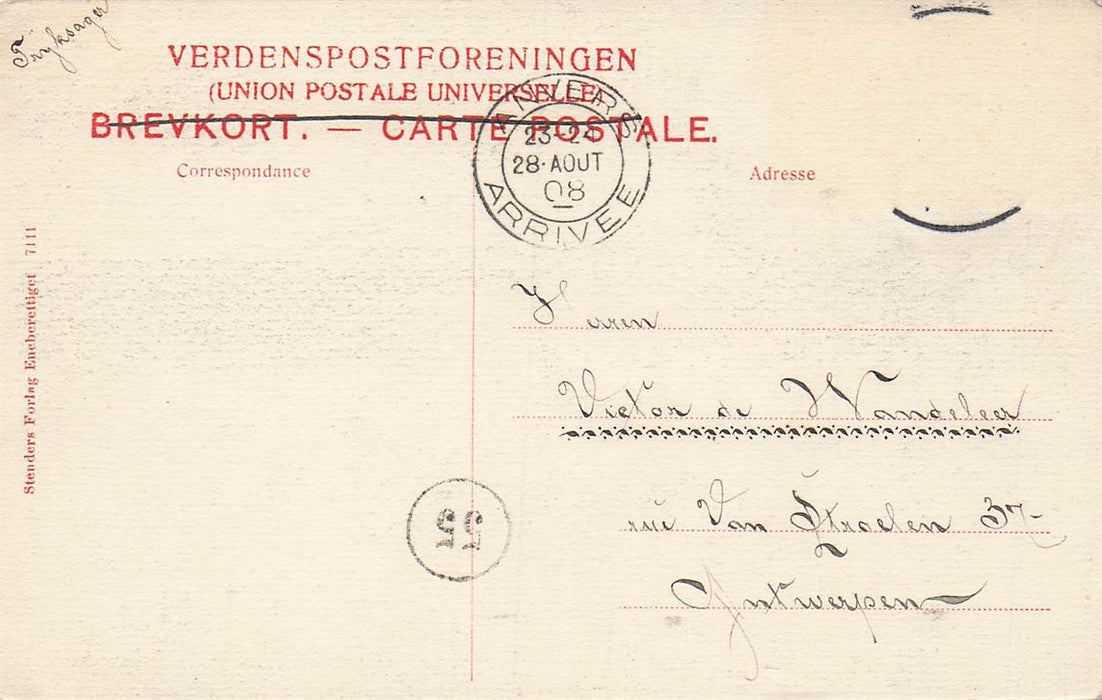 Tryksager
VERDENSPOSTFORENINGEN
(UNION POSTALE UNIVERSELLE)
BREVKORT. — CARTE POSTALE.
Correspondance
Adresse
ANVERS
23-24
28·AOUT
08
ARRIVEE
Stenders Forlag Eneberettiget 7111
Herren
Victor de Wandeleer
rue Van Straelen 37-
Antwerpen
55